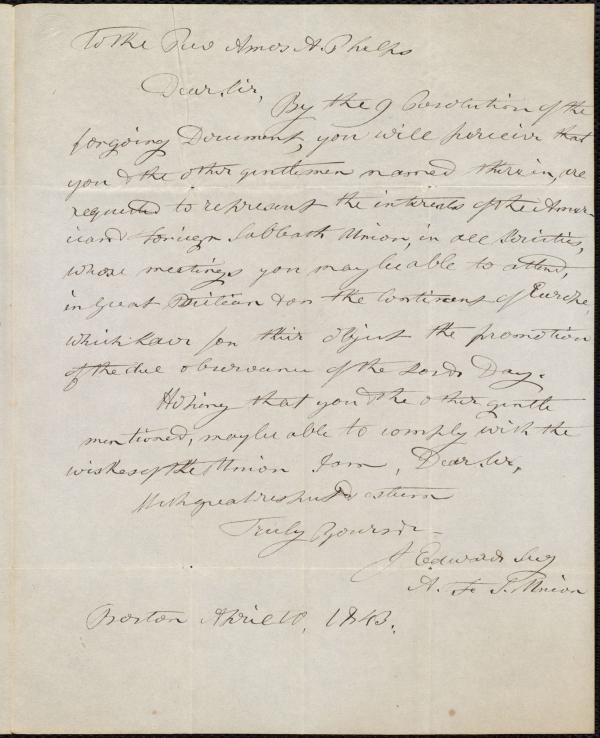 To the Rev Amos A. Phelps
Dear Sir,
By the 9 Resolution of the
forgoing Document, you will perceive that
you & the other gentlemen named therein, are
requested to represent the interests of the Amer-
ican & Foreign Sabbath Union, in all Societies,
whose meetings you may be able to attend,
in Great Britian & on the Continent of Europe,
which have for their object the promotion
of the due observance of the Lords Day.
Hoping that you & the other gentle
mentioned, may be able to comply with the
wishes of the Union I am, Dear Sir,
With great respect & esteem
Truly Yours
J Edwards Secy
A. & F. S. Union
Boston April 10, 1843.